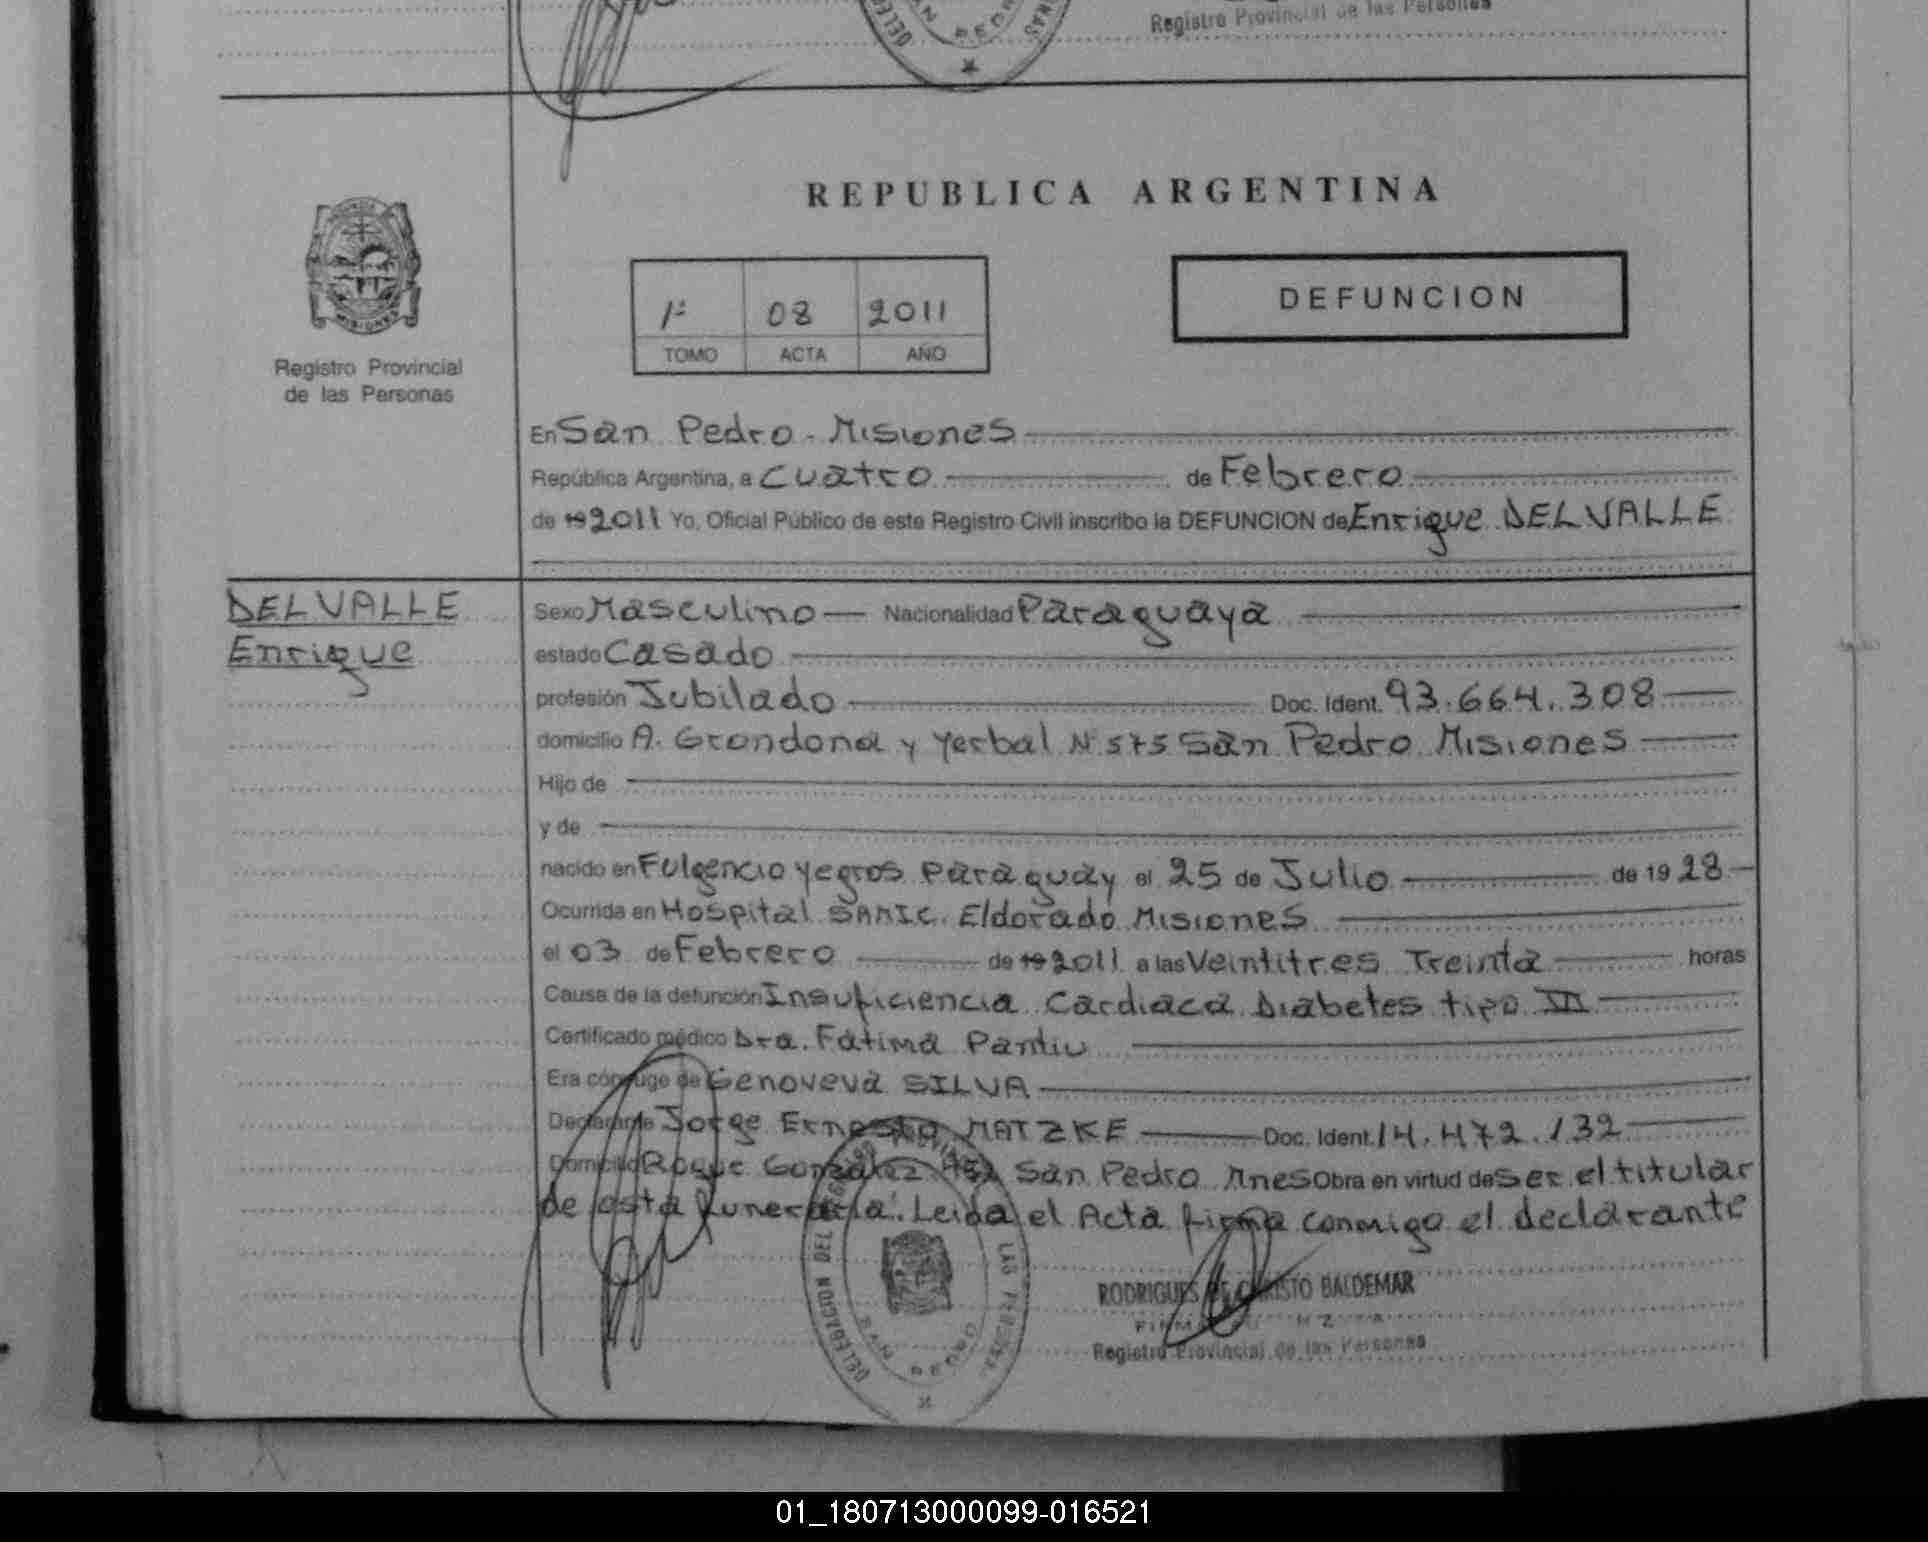 Registro Provincial de las Personas
SAN PEDRO
REPUBLICA ARGENTINA
PROVINCIA
MISIONES
Registro Provincial
de las Personas
1º 08 2011
TOMO ACTA AÑO
DEFUNCION
En San Pedro - Misiones
República Argentina, a Cuatro de Febrero
de 19 2011 Yo, Oficial Público de este Registro Civil inscribo la DEFUNCION de Enrique DELVALLE
DELVALLE
Enrique
Sexo Masculino — Nacionalidad Paraguaya
estado Casado
profesión Jubilado Doc. Ident. 93.664.308
domicilio A. Grondona y Yerbal Nº 575 San Pedro Misiones
Hijo de
y de
nacido en Fulgencio Yegros Paraguay el 25 de Julio de 19 28
Ocurrida en Hospital SAMIC. Eldorado Misiones
el 03 de Febrero de 19 2011 a las Veintitres Treinta horas
Causa de la defunción Insuficiencia Cardiaca Diabetes tipo
Certificado médico Dra. Fátima
Era cónyuge de Genoveva SILVA
Declarante Jorge Ernesto MATZKE Doc. Ident. 14.472.132
Domicilio Roque Gonzalez San Pedro Mnes Obra en virtud de Ser el titular
de esta funeraria. Leida el Acta firma conmigo el declarante
DELEGACION DEL LAS PERSONAS
SAN PEDRO
RODRIGUES DE CHRISTO BALDEMAR
Registro Provincial de las Personas
01_180713000099-016521